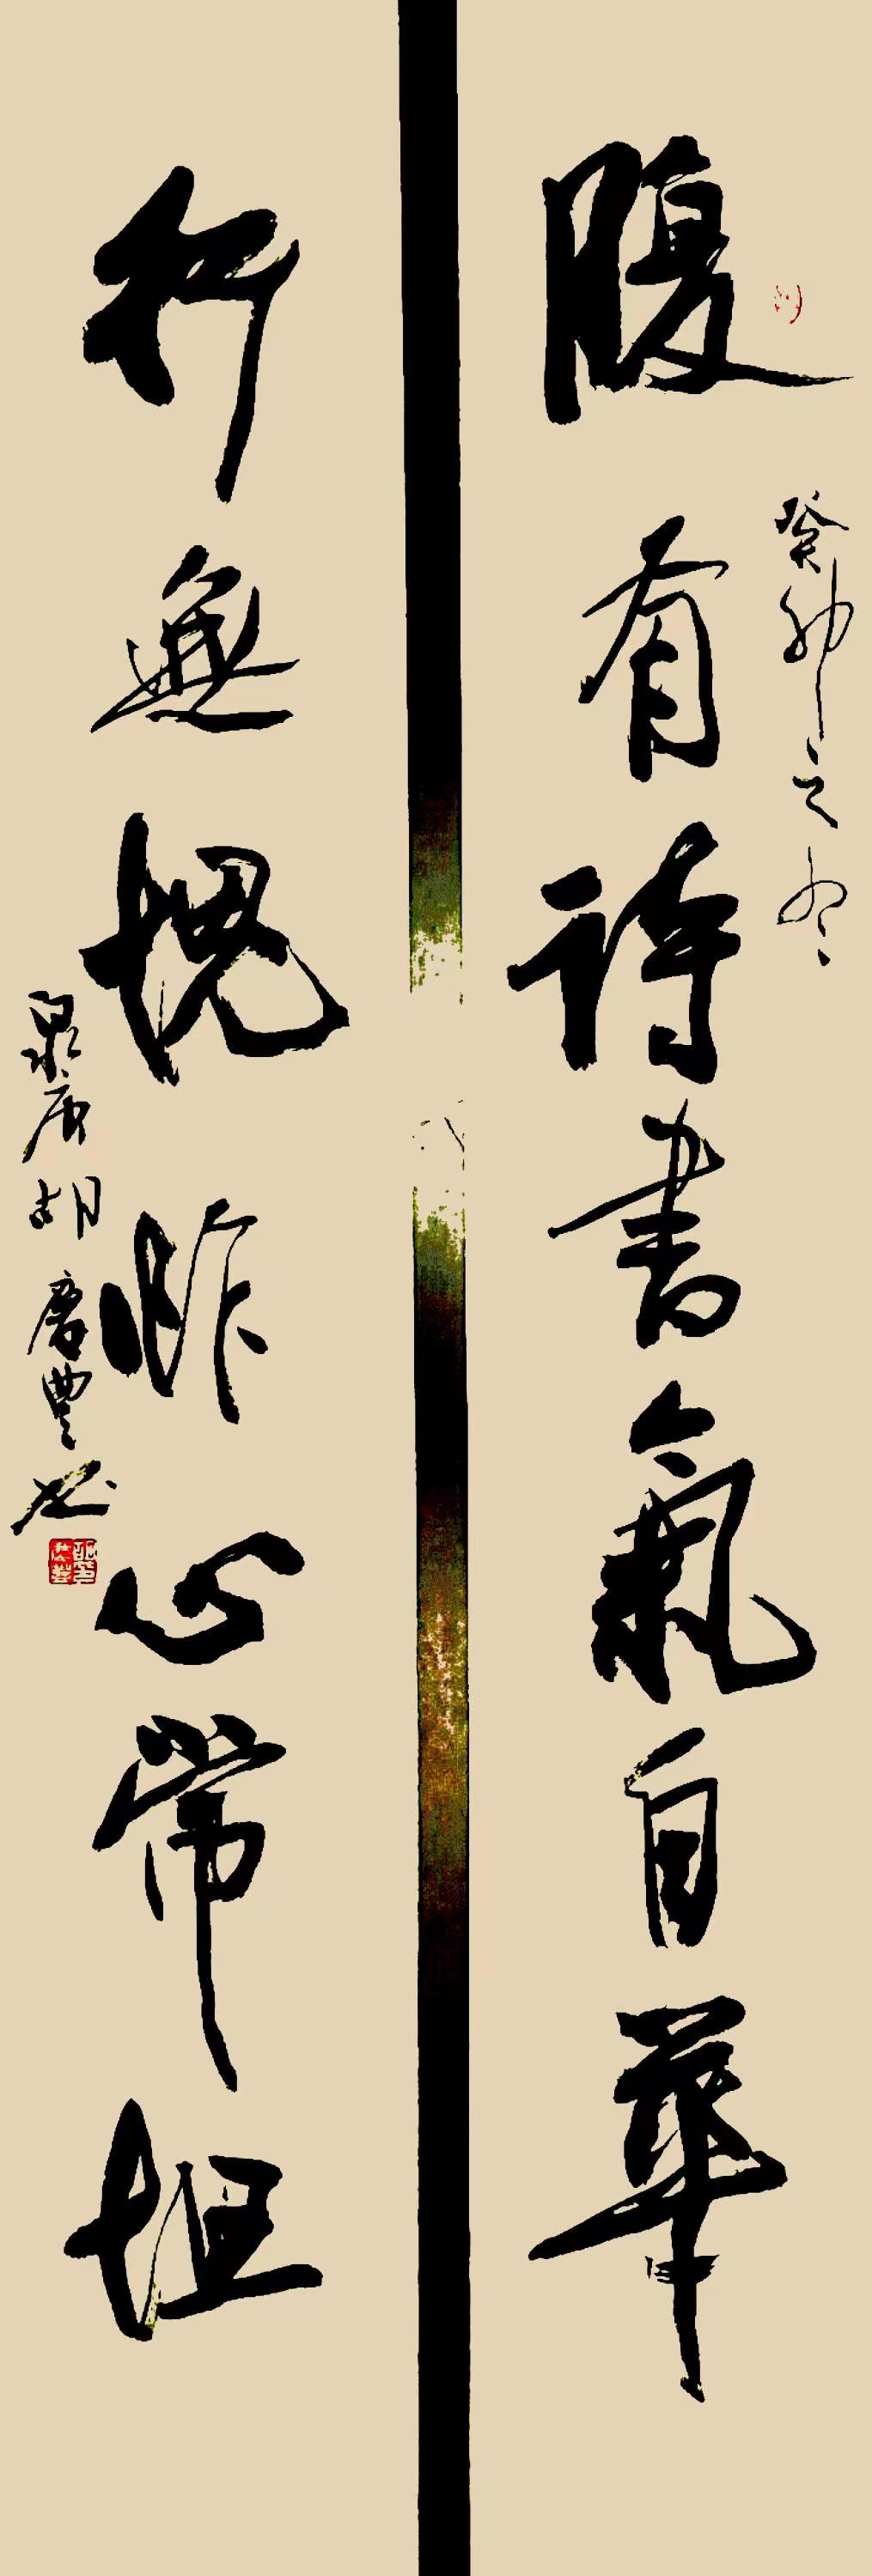 腹有詩書氣自華
癸卯之冬
行無愧怍心常坦
泉唐胡慶豐書